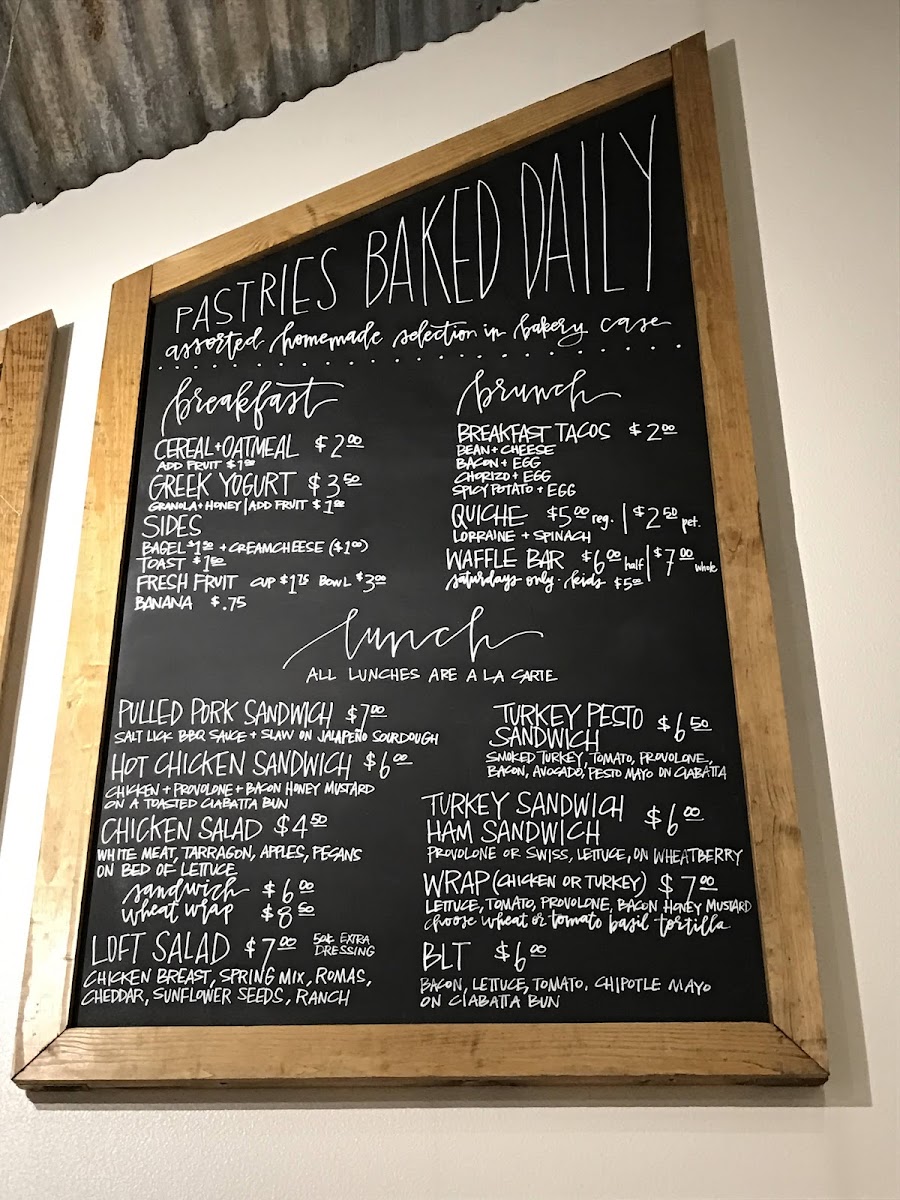 PASTRIES BAKED DAILY
assorted homemade selection in bakery case
breakfast
CEREAL + OATMEAL $2.00
ADD FRUIT $1.00
GREEK YOGURT $3.50
GRANOLA + HONEY | ADD FRUIT $1.00
SIDES
BAGEL $1.50 + CREAMCHEESE ($1.00)
TOAST $1.50
FRESH FRUIT CUP $1.75 BOWL $3.00
BANANA $.75
brunch
BREAKFAST TACOS $2.00
BEAN + CHEESE
BACON + EGG
CHORIZO + EGG
SPICY POTATO + EGG
QUICHE $5.00 reg. | $2.50 pet.
LORRAINE + SPINACH
WAFFLE BAR $6.00 half | $7.00 whole
saturdays only · kids $5.00
lunch
ALL LUNCHES ARE A LA CARTE
PULLED PORK SANDWICH $7.00
SALT LICK BBQ SAUCE + SLAW ON JALAPEÑO SOURDOUGH
HOT CHICKEN SANDWICH $6.00
CHICKEN + PROVOLONE + BACON HONEY MUSTARD
ON A TOASTED CIABATTA BUN
CHICKEN SALAD $4.50
WHITE MEAT, TARRAGON, APPLES, PECANS
ON BED OF LETTUCE
sandwich $6.00
wheat wrap $8.50
LOFT SALAD $7.00 50¢ EXTRA
DRESSING
CHICKEN BREAST, SPRING MIX, ROMAS,
CHEDDAR, SUNFLOWER SEEDS, RANCH
TURKEY PESTO $6.50
SANDWICH
SMOKED TURKEY, TOMATO, PROVOLONE,
BACON, AVOCADO, PESTO MAYO ON CIABATTA
TURKEY SANDWICH
HAM SANDWICH $6.00
PROVOLONE OR SWISS, LETTUCE, ON WHEATBERRY
WRAP (CHICKEN OR TURKEY) $7.00
LETTUCE, TOMATO, PROVOLONE, BACON HONEY MUSTARD
choose wheat or tomato basil tortilla
BLT $6.00
BACON, LETTUCE, TOMATO, CHIPOTLE MAYO
ON CIABATTA BUN